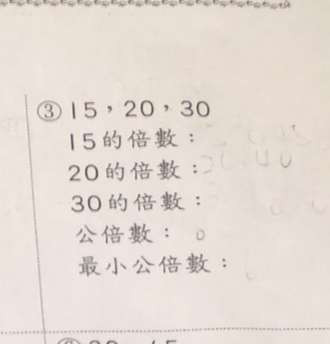 ③ 15，20，30
15的倍數：
20的倍數：
30的倍數：
公倍數：
最小公倍數：